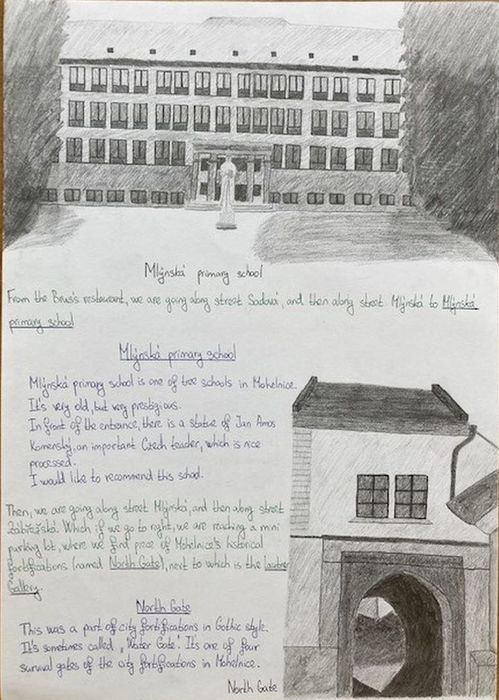 Mlýnská primary school
From the Brus's restaurant, we are going along street Sadová, and then along street Mlýnská to Mlýnská
primary school
Mlýnská primary school
Mlýnská primary school is one of tree schools in Mohelnice.
It's very old, but very prestigious.
In front of the entrance, there is a statue of Jan Amos
Komenský, an important Czech teacher, which is nice
processed.
I would like to recommend this school.
Then, we are going along street Mlýnská, and then along street
Zábřežská. Which if we go to right, we are reaching a mini
parking lot, where we find piece of Mohelnice's historical
fortifications (named North Gate), next to which is the
Gallery.
North Gate
This was a part of city fortifications in Gothic style.
It's sometimes called „Water Gate". It's one of four
survival gates of the city fortifications in Mohelnice.
North Gate